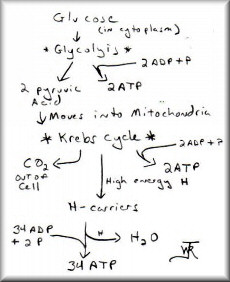 Glucose
(in cytoplasm)
* Glycolysis *
2 ADP + P
2 pyruvic Acid
2 ATP
Moves into Mitochondria
* Krebs Cycle *
2 ADP + P
CO2
out of Cell
2 ATP
High energy H
H-carriers
34 ADP + 2 P
H
H2O
34 ATP